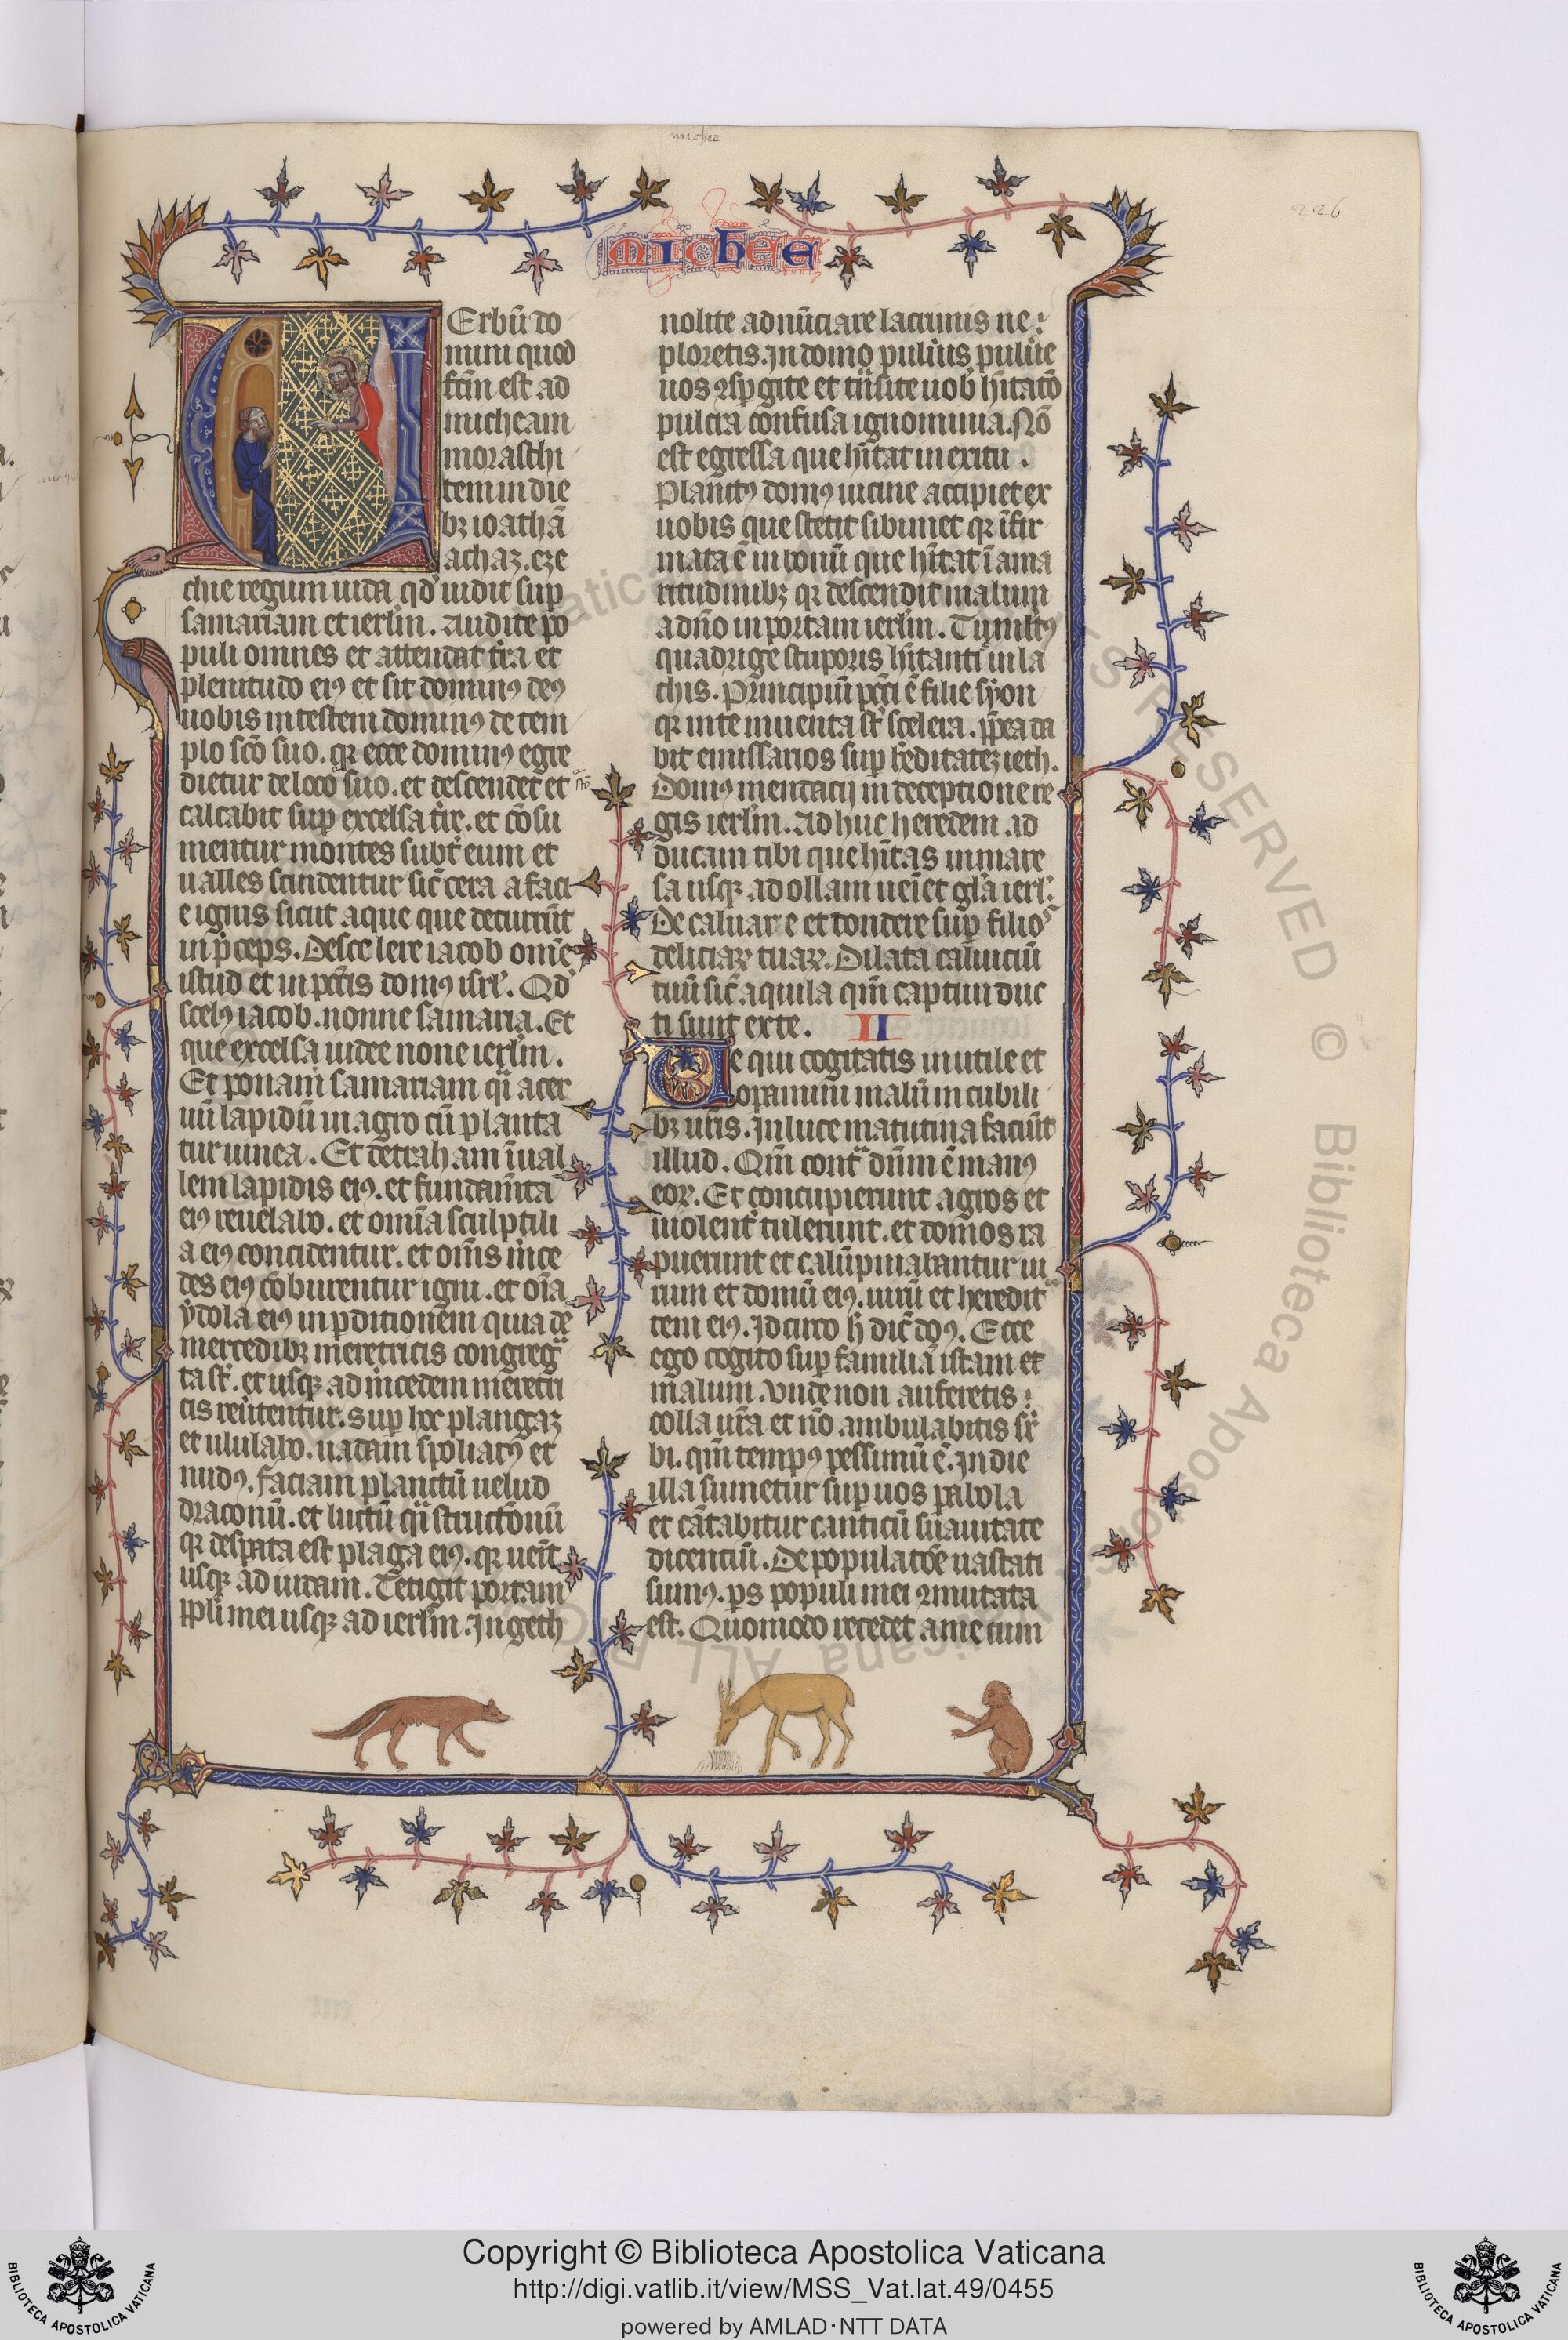 michee
226
michee
Erbū do
mini quod
fc̄m est ad
micheam
morasthi
tem in die
bꝫ ioathā
achaz. eze
chie regum iuda qd̕ uidit sup̱
samariam et ierl̄m. Audite po
puli omnes et attendat t̄ra et
plenitudo eiꝰ et sit dominꝰ deꝰ
uobis in testem dominꝰ de tem
plo sc̄o suo. qꝛ ecce dominꝰ egre
dietur de loco suo. et descendet et
calcabit sup̱ excelsa t̄re. et cōsu
mentur montes subt̄ eum et
ualles scindentur sic̄ cera a faci
e ignis sicut aque que decurrūt
in p̄ceps. Desce lere iacob om̄e
istud et in pc̄tis domꝰ isrl̄. Qd̕
scelꝰ iacob. nonne samaria. Et
que excelsa iudee none ierl̄m.
Et ponam samariam qͣi acer
uū lapidū in agro cū planta
tur uinea. Et detraham ī ual
lem lapidis eiꝰ. et fundam̄ta
eiꝰ reuelabo. et omīa sculptili
a eiꝰ concidentur. et om̄s m̄ce
des eiꝰ cōburentur igni. et oīa
ẏdola eiꝰ in ꝑditionem quia de
mercedibꝫ meretricis congregͣ
ta st̄. et usqꝫ ad m̄cedem meretri
cis reūtentur. Sup̱ hoc plangaꝫ
et ululabo. uadam spoliatꝰ et
nudꝰ. faciam planctū uelud
draconū. et luctū qͣi structōnū
qꝛ desꝑata est plaga eiꝰ. qꝛ uēit
usqꝫ ad iudam. Tetigit portam
pp̄li mei usqꝫ ad ierl̄m. In geth
nolite adnūciare lacrimis ne
ploretis. In domo puluīs puluīe
uos ꝯsp̱gite et tn̄site uob̕ hītatō
pulcra confusa ignominia. Nō
est egressa que hītat in exitu.
Planctꝰ domꝰ uicine accipiet ex
uobis que stetit sibimet qꝛ īfir
mata ē in bonū que hītat ī ama
ritudinibꝫ qꝛ descendit malum
a dn̄o in portam ierl̄m. Tumltꝰ
quadrige stuporis hītanti in la
chis. Principiū pc̄ti ē filie sẏon
qꝛ in te inuenta st̄ scelera. ꝓpea da
bit emissarios sup̱ h̄editateꝫ ieth.
Domꝰ mendacij in deceptione re
gis ierl̄m. Ad huc heredem ad
ducam tibi que hītas in mare
sa usqꝫ ad ollam uēiet gl̄a ierl̄.
De caluare et tondere sup̱ filios
deliciaꝝ tuaꝝ. Dilata caluiciū
tuū sic̄ aquila qm̄ captiui duc
ti sunt ex te. II
Ve qui cogitatis inutile et
opamini malū in cubili
bꝫ ur̄is. In luce matutina faciūt
illud. Qm̄ contͣ dn̄m ē manꝰ
eoꝝ. Et concupierunt agros et
uiolent̄ tulerunt. et domos ra
puerunt et calūpniabantur ui
rum et domū eiꝰ. uirū et hereditͣ
tem eiꝰ. Idcirco h̄ dic̄ dn̄s. Ecce
ego cogito sup̱ familiā istam et
malum. Vnde non auferetis
colla ur̄a et nō ambulabitis sr̄
bi. qm̄ tempꝰ pessimū ē. In die
illa sumetur sup̱ uos pabola
et cātabitur canticū suauitate
dicentiū. Depopulatōe uastati
sumꝰ. ꝑs populi mei ꝯmutata
est. Quomodo recedet a me cum
Copyright © Biblioteca Apostolica Vaticana
http://digi.vatlib.it/view/MSS_Vat.lat.49/0455
powered by AMLAD·NTT DATA
BIBLIOTECA APOSTOLICA VATICANA
BIBLIOTECA APOSTOLICA VATICANA